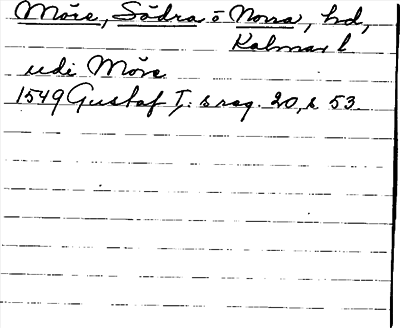 Möre, Södra o Norra, hd,
Kalmar l
udi Möre
1549 Gustaf I: s reg. 20, s 53.